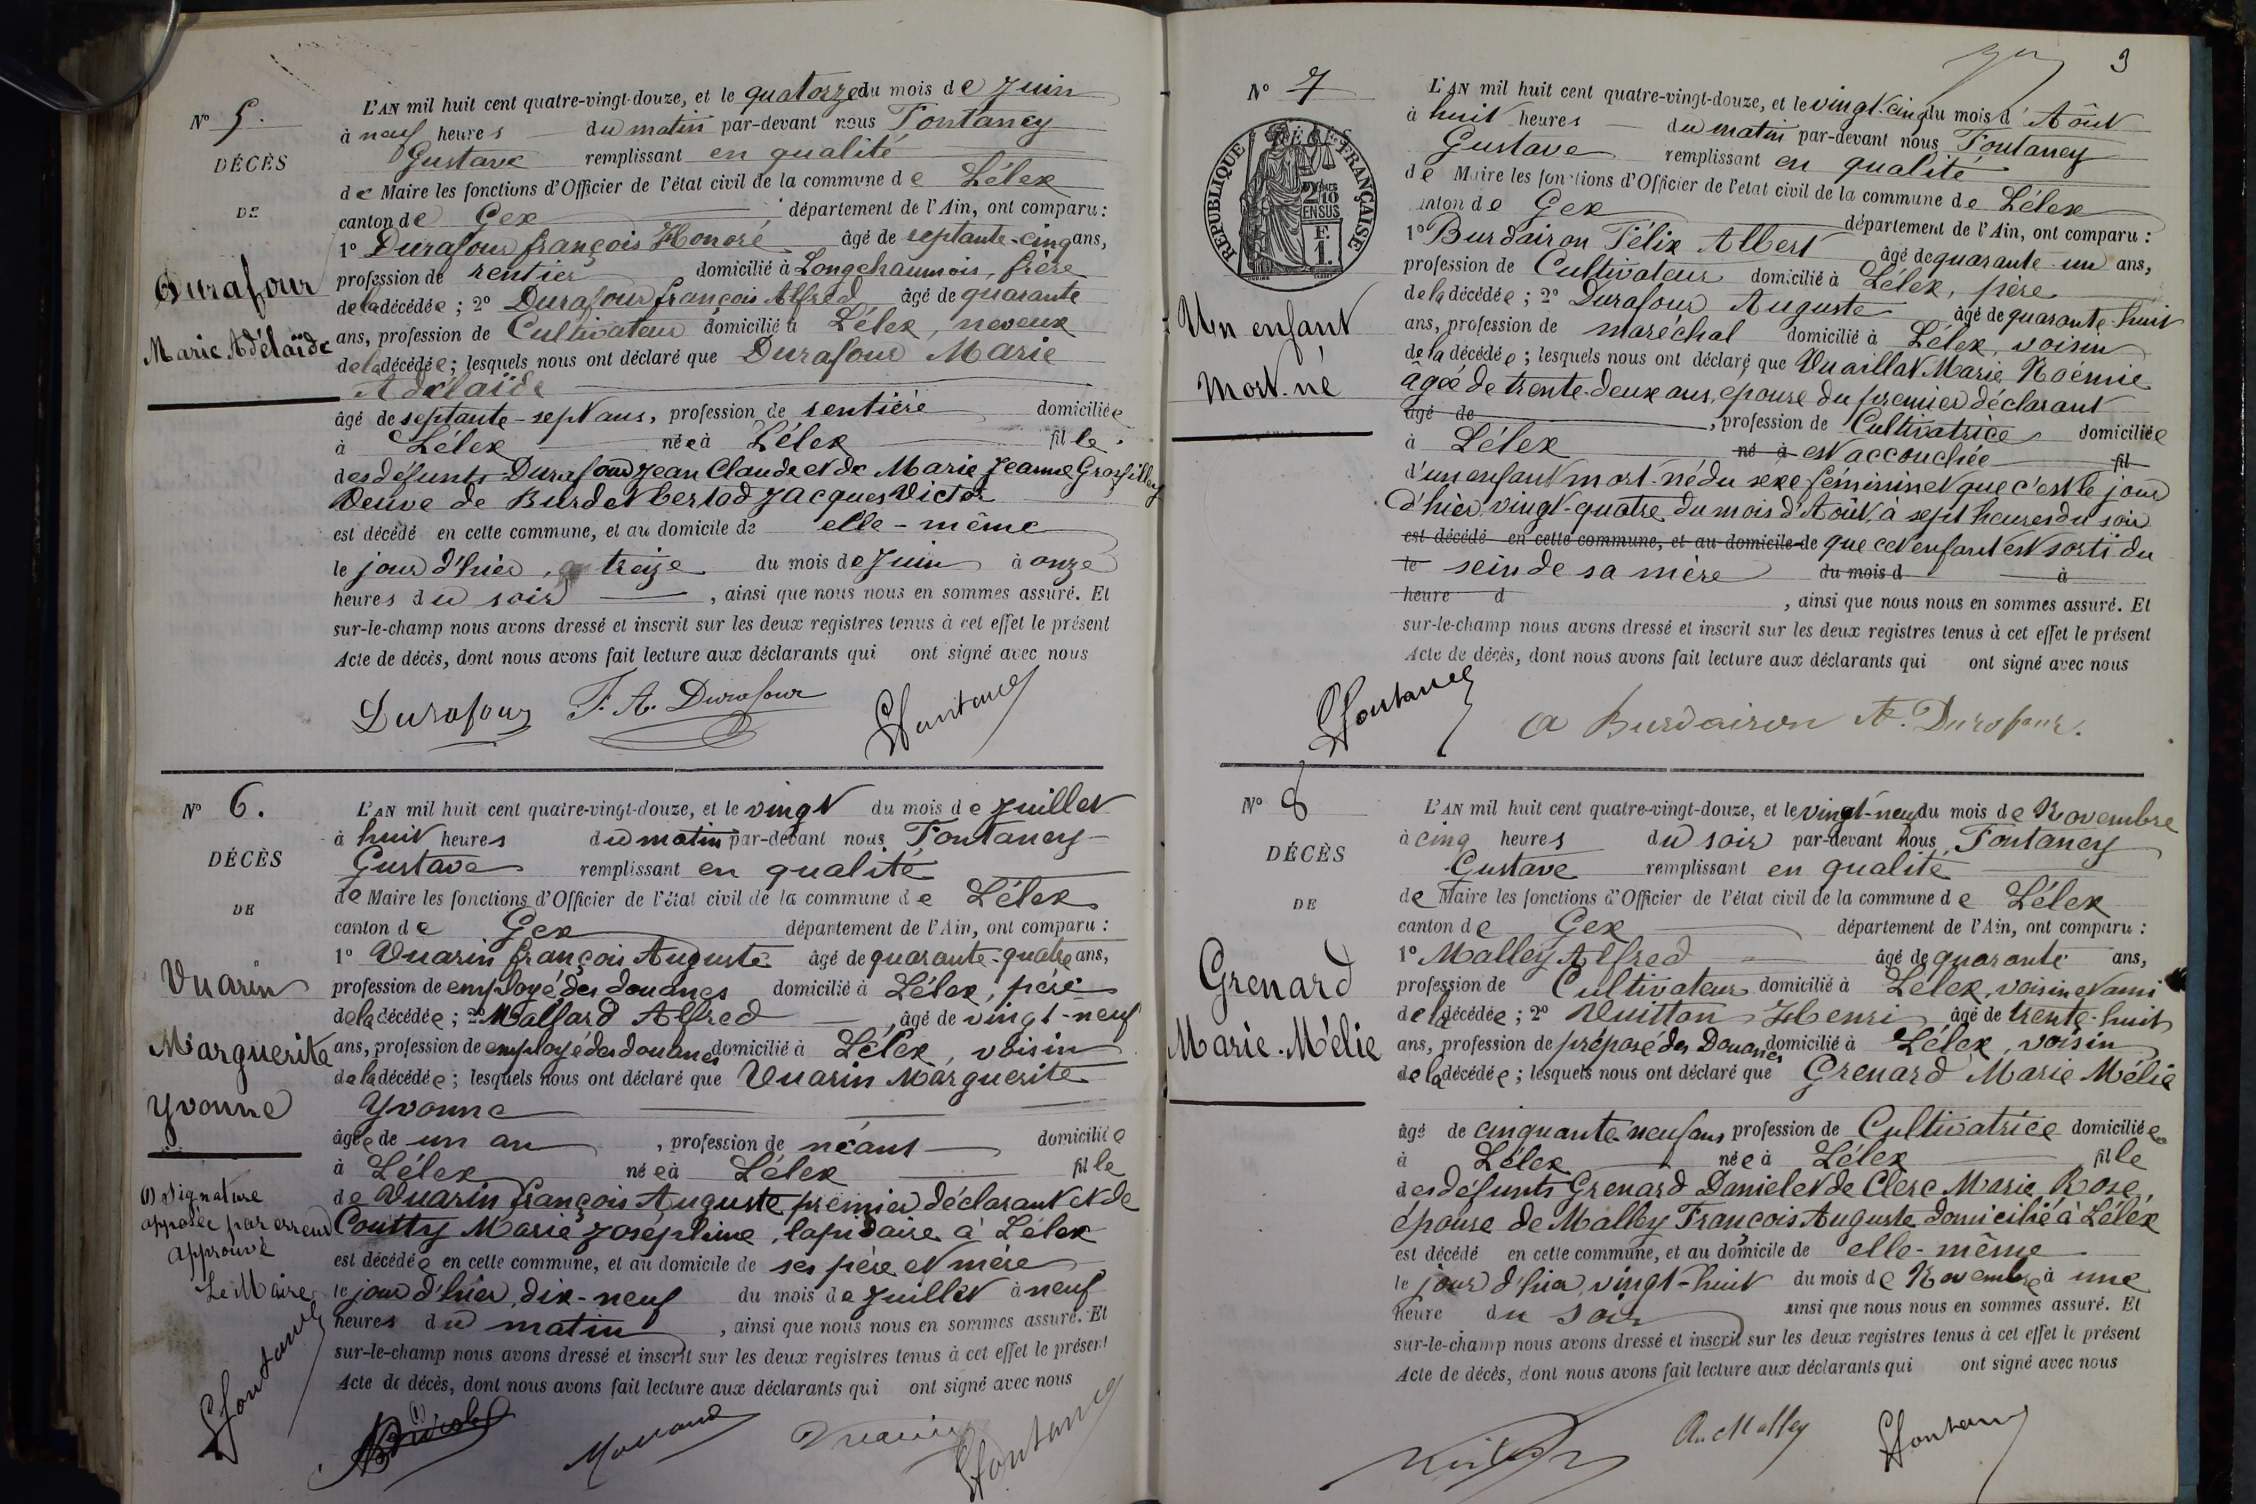 N° 5.
DÉCÈS
DE
Durafour
Marie Adélaïde
L'AN mil huit cent quatre-vingt-douze, et le quatorze du mois de Juin
à neuf heures du matin par-devant nous Fontaney
Gustave remplissant en qualité
de Maire les fonctions d'Officier de l'état civil de la commune de Lélex
canton de Gex département de l'Ain, ont comparu :
1° Durafour françois Honoré âgé de septante-cinq ans,
profession de rentier domicilié à Longchaumois, frère
de la décédée ; 2° Durafour françois Alfred âgé de quarante
ans, profession de Cultivateur domicilié à Lélex, neveux
de la décédée ; lesquels nous ont déclaré que Durafour Marie
Adélaïde
âgé de septante-sept ans, profession de rentière domiciliée
à Lélex née à Lélex fille
des défunts Durafour Jean Claude et de Marie Jeanne Grosfilley
Veuve de Burdet bertod Jacques Victor
est décédé en cette commune, et au domicile de elle-même
le jour d'hier, treize du mois de Juin à onze
heures du soir, ainsi que nous nous en sommes assuré. Et
sur-le-champ nous avons dressé et inscrit sur les deux registres tenus à cet effet le présent
Acte de décès, dont nous avons fait lecture aux déclarants qui ont signé avec nous
Durafour F. A. Durafour GFontaney
N° 6.
DÉCÈS
DE
Vuarin
Marguerite
Yvonne
(1) Signature
apposée par erreur
approuvé
Le Maire
GFontaney
L'AN mil huit cent quatre-vingt-douze, et le vingt du mois de Juillet
à huit heures du matin par-devant nous Fontaney
Gustave remplissant en qualité
de Maire les fonctions d'Officier de l'état civil de la commune de Lélex
canton de Gex département de l'Ain, ont comparu :
1° Vuarin françois Auguste âgé de quarante-quatre ans,
profession de employé des douanes domicilié à Lélex, père
de la décédée ; 2° Malfard Alfred âgé de vingt-neuf
ans, profession de employé des douanes domicilié à Lélex, voisin
de la décédée ; lesquels nous ont déclaré que Vuarin Marguerite
Yvonne
âgée de un an, profession de néant domiciliée
à Lélex née à Lélex fille
de Vuarin françois Auguste, premier déclarant et de
Coutty Marie Joséphine, lapidaire à Lélex
est décédée en cette commune, et au domicile de ses père et mère
le jour d'hier, dix-neuf du mois de Juillet à neuf
heures du matin, ainsi que nous nous en sommes assuré. Et
sur-le-champ nous avons dressé et inscrit sur les deux registres tenus à cet effet le présent
Acte de décès, dont nous avons fait lecture aux déclarants qui ont signé avec nous
(1) Vuarin GFontaney
9
N° 7
RÉPUBLIQUE FRANÇAISE
Un enfant
Mort-né
L'AN mil huit cent quatre-vingt-douze, et le vingt-cinq du mois d'Août
à huit heures du matin par-devant nous Fontaney
Gustave remplissant en qualité
de Maire les fonctions d'Officier de l'état civil de la commune de Lélex
canton de Gex département de l'Ain, ont comparu :
1° Burdairon Félix Albert âgé de quarante-un ans,
profession de Cultivateur domicilié à Lélex, père
de la décédée ; 2° Durafour Auguste âgé de quarante-huit
ans, profession de maréchal domicilié à Lélex voisin
de la décédée ; lesquels nous ont déclaré que Vuaillat Marie Noémie
âgée de trente-deux ans, épouse du premier déclarant
âgé de, profession de Cultivatrice domiciliée
à Lélex né à est accouchée fil
d'un enfant mort-né du sexe féminin et que c'est le jour
d'hier vingt-quatre du mois d'Août, à sept heures du soir
est décédé en cette commune, et au domicile de que cet enfant est sorti du
le sein de sa mère du mois d à
heure d, ainsi que nous nous en sommes assuré. Et
sur-le-champ nous avons dressé et inscrit sur les deux registres tenus à cet effet le présent
Acte de décès, dont nous avons fait lecture aux déclarants qui ont signé avec nous
GFontaney A Burdairon A. Durafour.
N° 8
DÉCÈS
DE
Grenard
Marie-Mélie
L'AN mil huit cent quatre-vingt-douze, et le vingt-neuf du mois de Novembre
à cinq heures du soir par-devant nous Fontaney
Gustave remplissant en qualité
de Maire les fonctions d'Officier de l'état civil de la commune de Lélex
canton de Gex département de l'Ain, ont comparu :
1° Malley Alfred âgé de quarante ans,
profession de Cultivateur domicilié à Lélex, voisin et ami
de la décédée ; 2° Vuitton Henri âgé de trente-huit
ans, profession de préposé des Douanes domicilié à Lélex, voisin
de la décédée ; lesquels nous ont déclaré que Grenard Marie Mélie
âgé de cinquante-neuf ans profession de Cultivatrice domiciliée
à Lélex née à Lélex fille
des défunts Grenard Daniel et de Clerc Marie Rose,
épouse de Malley François Auguste domicilié à Lélex
est décédé en cette commune, et au domicile de elle-même
le jour d'hier, vingt-huit du mois de Novembre à une
heure du soir ainsi que nous nous en sommes assuré. Et
sur-le-champ nous avons dressé et inscrit sur les deux registres tenus à cet effet le présent
Acte de décès, dont nous avons fait lecture aux déclarants qui ont signé avec nous
A. Malley GFontaney